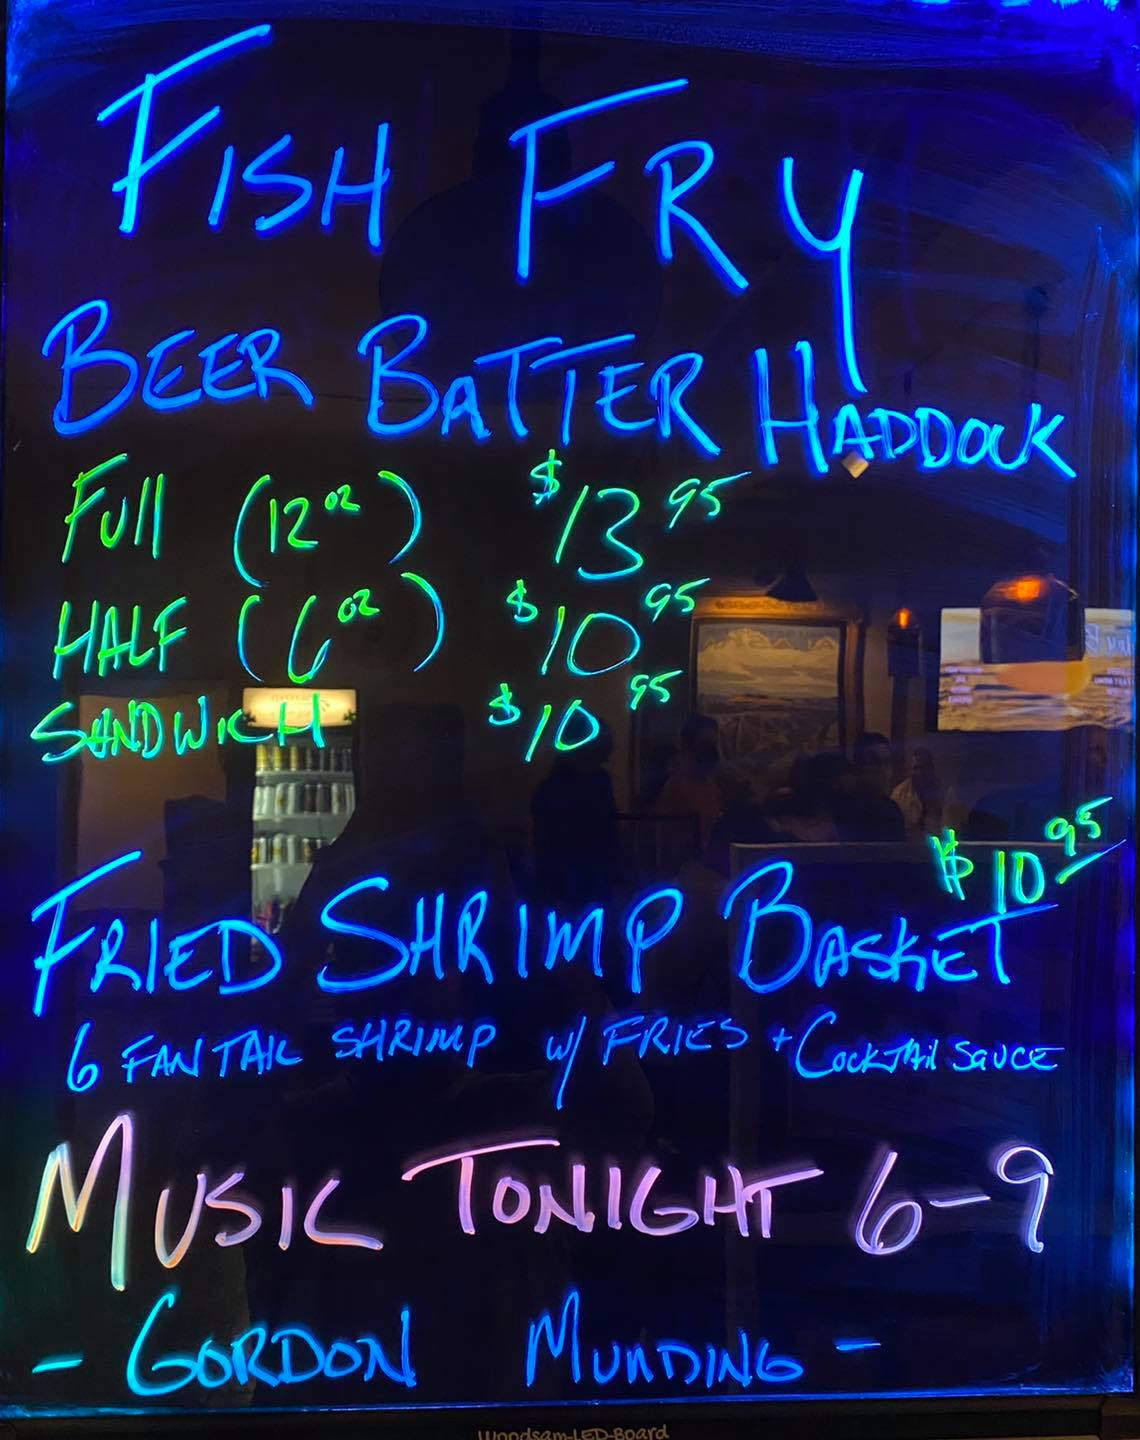 FISH FRY
BEER BATTER HADDOCK
FULL (12 oz) $13.95
HALF (6 oz) $10.95
SANDWICH $10.95
$10.95
FRIED SHRIMP BASKET
6 FANTAIL SHRIMP w/ FRIES + COCKTAil SAUCE
MUSIC TONIGHT 6-9
- GORDON MUNDING -
Woodsam-LED-Board